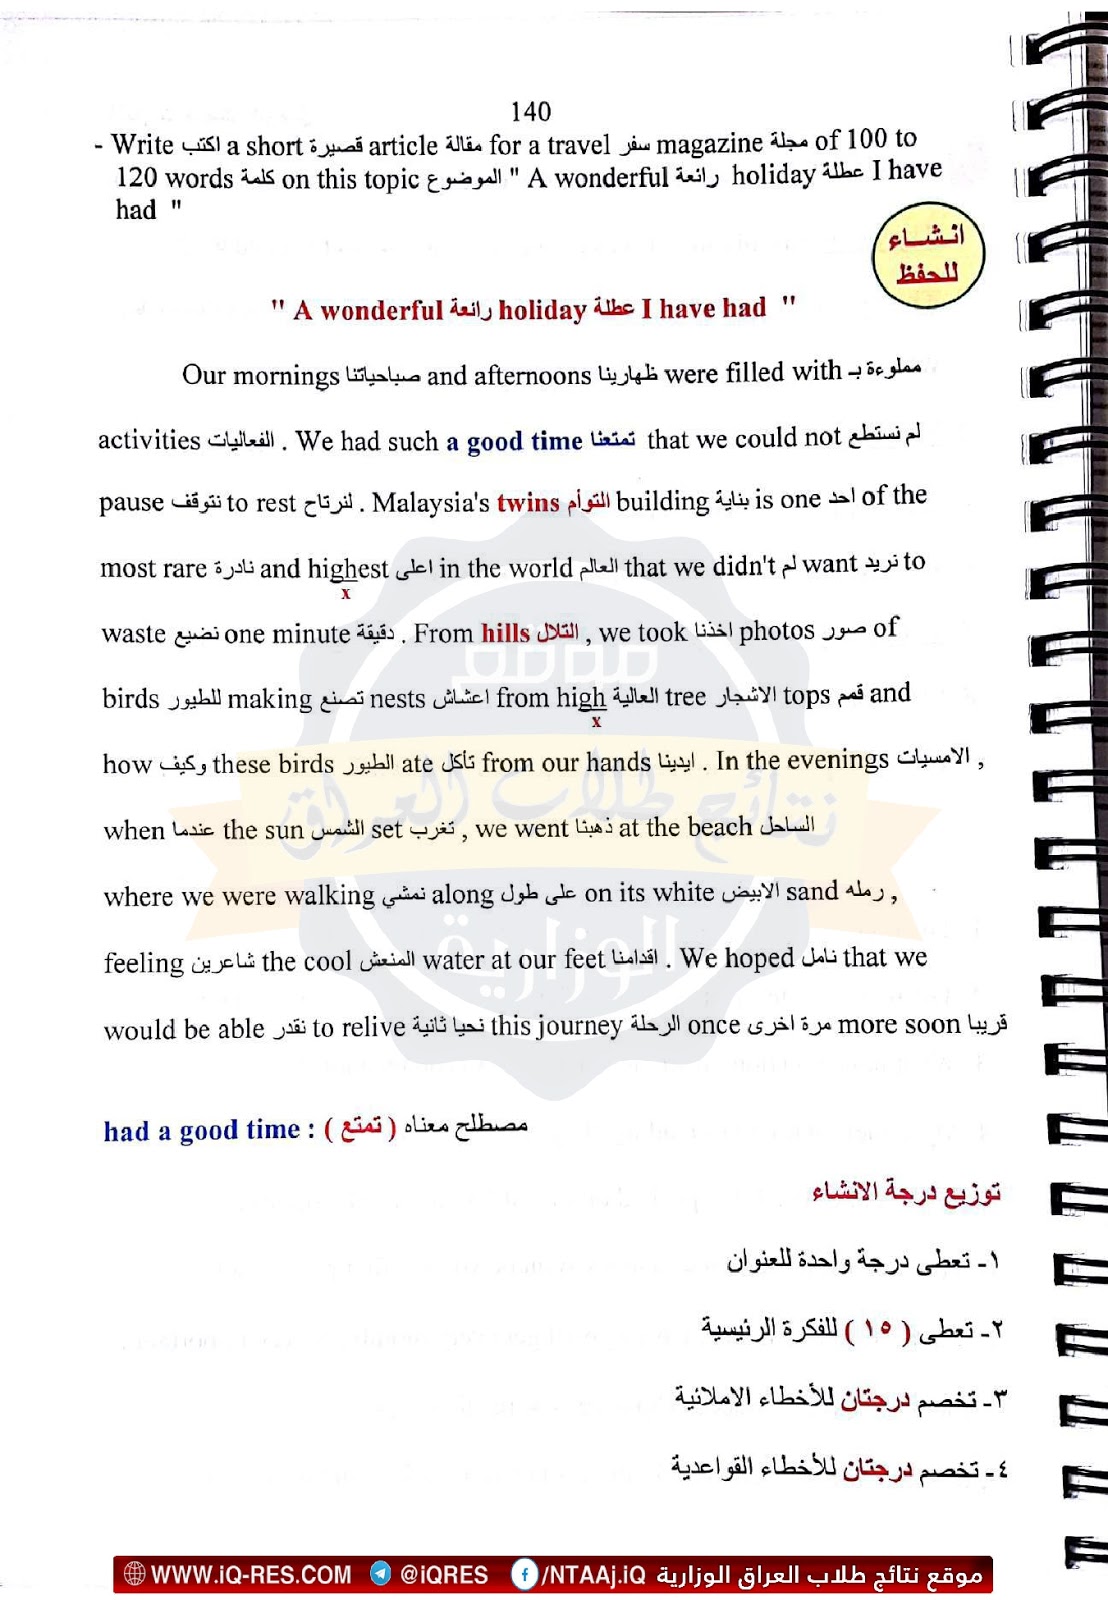 140
- Write اكتب a short قصيرة article مقالة for a travel سفر magazine مجلة of 100 to
120 words كلمة on this topic الموضوع " A wonderful رائعة holiday عطلة I have
had "
انشاء
للحفظ
" A wonderful رائعة holiday عطلة I have had "
Our mornings صباحياتنا and afternoons ظهارينا were filled with مملوءة بـ
activities الفعاليات . We had such a good time تمتعنا that we could not لم نستطع
pause نتوقف to rest لنرتاح . Malaysia's twins التوأم building بناية is one احد of the
most rare نادرة and highest اعلى in the world العالم that we didn't لم want نريد to
x
waste نضيع one minute دقيقة . From hills التلال , we took اخذنا photos صور of
birds للطيور making تصنع nests اعشاش from high العالية tree الاشجار tops قمم and
x
how وكيف these birds الطيور ate تأكل from our hands ايدينا . In the evenings الامسيات ,
when عندما the sun الشمس set تغرب , we went ذهبنا at the beach الساحل
where we were walking نمشي along على طول on its white الابيض sand رمله ,
feeling شاعرين the cool المنعش water at our feet اقدامنا . We hoped نامل that we
would be able نقدر to relive نحيا ثانية this journey الرحلة once مرة اخرى more soon قريبا
had a good time : ( تمتع ) مصطلح معناه
توزيع درجة الانشاء
١- تعطى درجة واحدة للعنوان
٢- تعطى ( ١٥ ) للفكرة الرئيسية
٣- تخصم درجتان للأخطاء الاملائية
٤- تخصم درجتان للأخطاء القواعدية
موقع
نتائج طلاب العراق
الوزارية
WWW.iQ-RES.COM @iQRES /NTAAj.iQ موقع نتائج طلاب العراق الوزارية